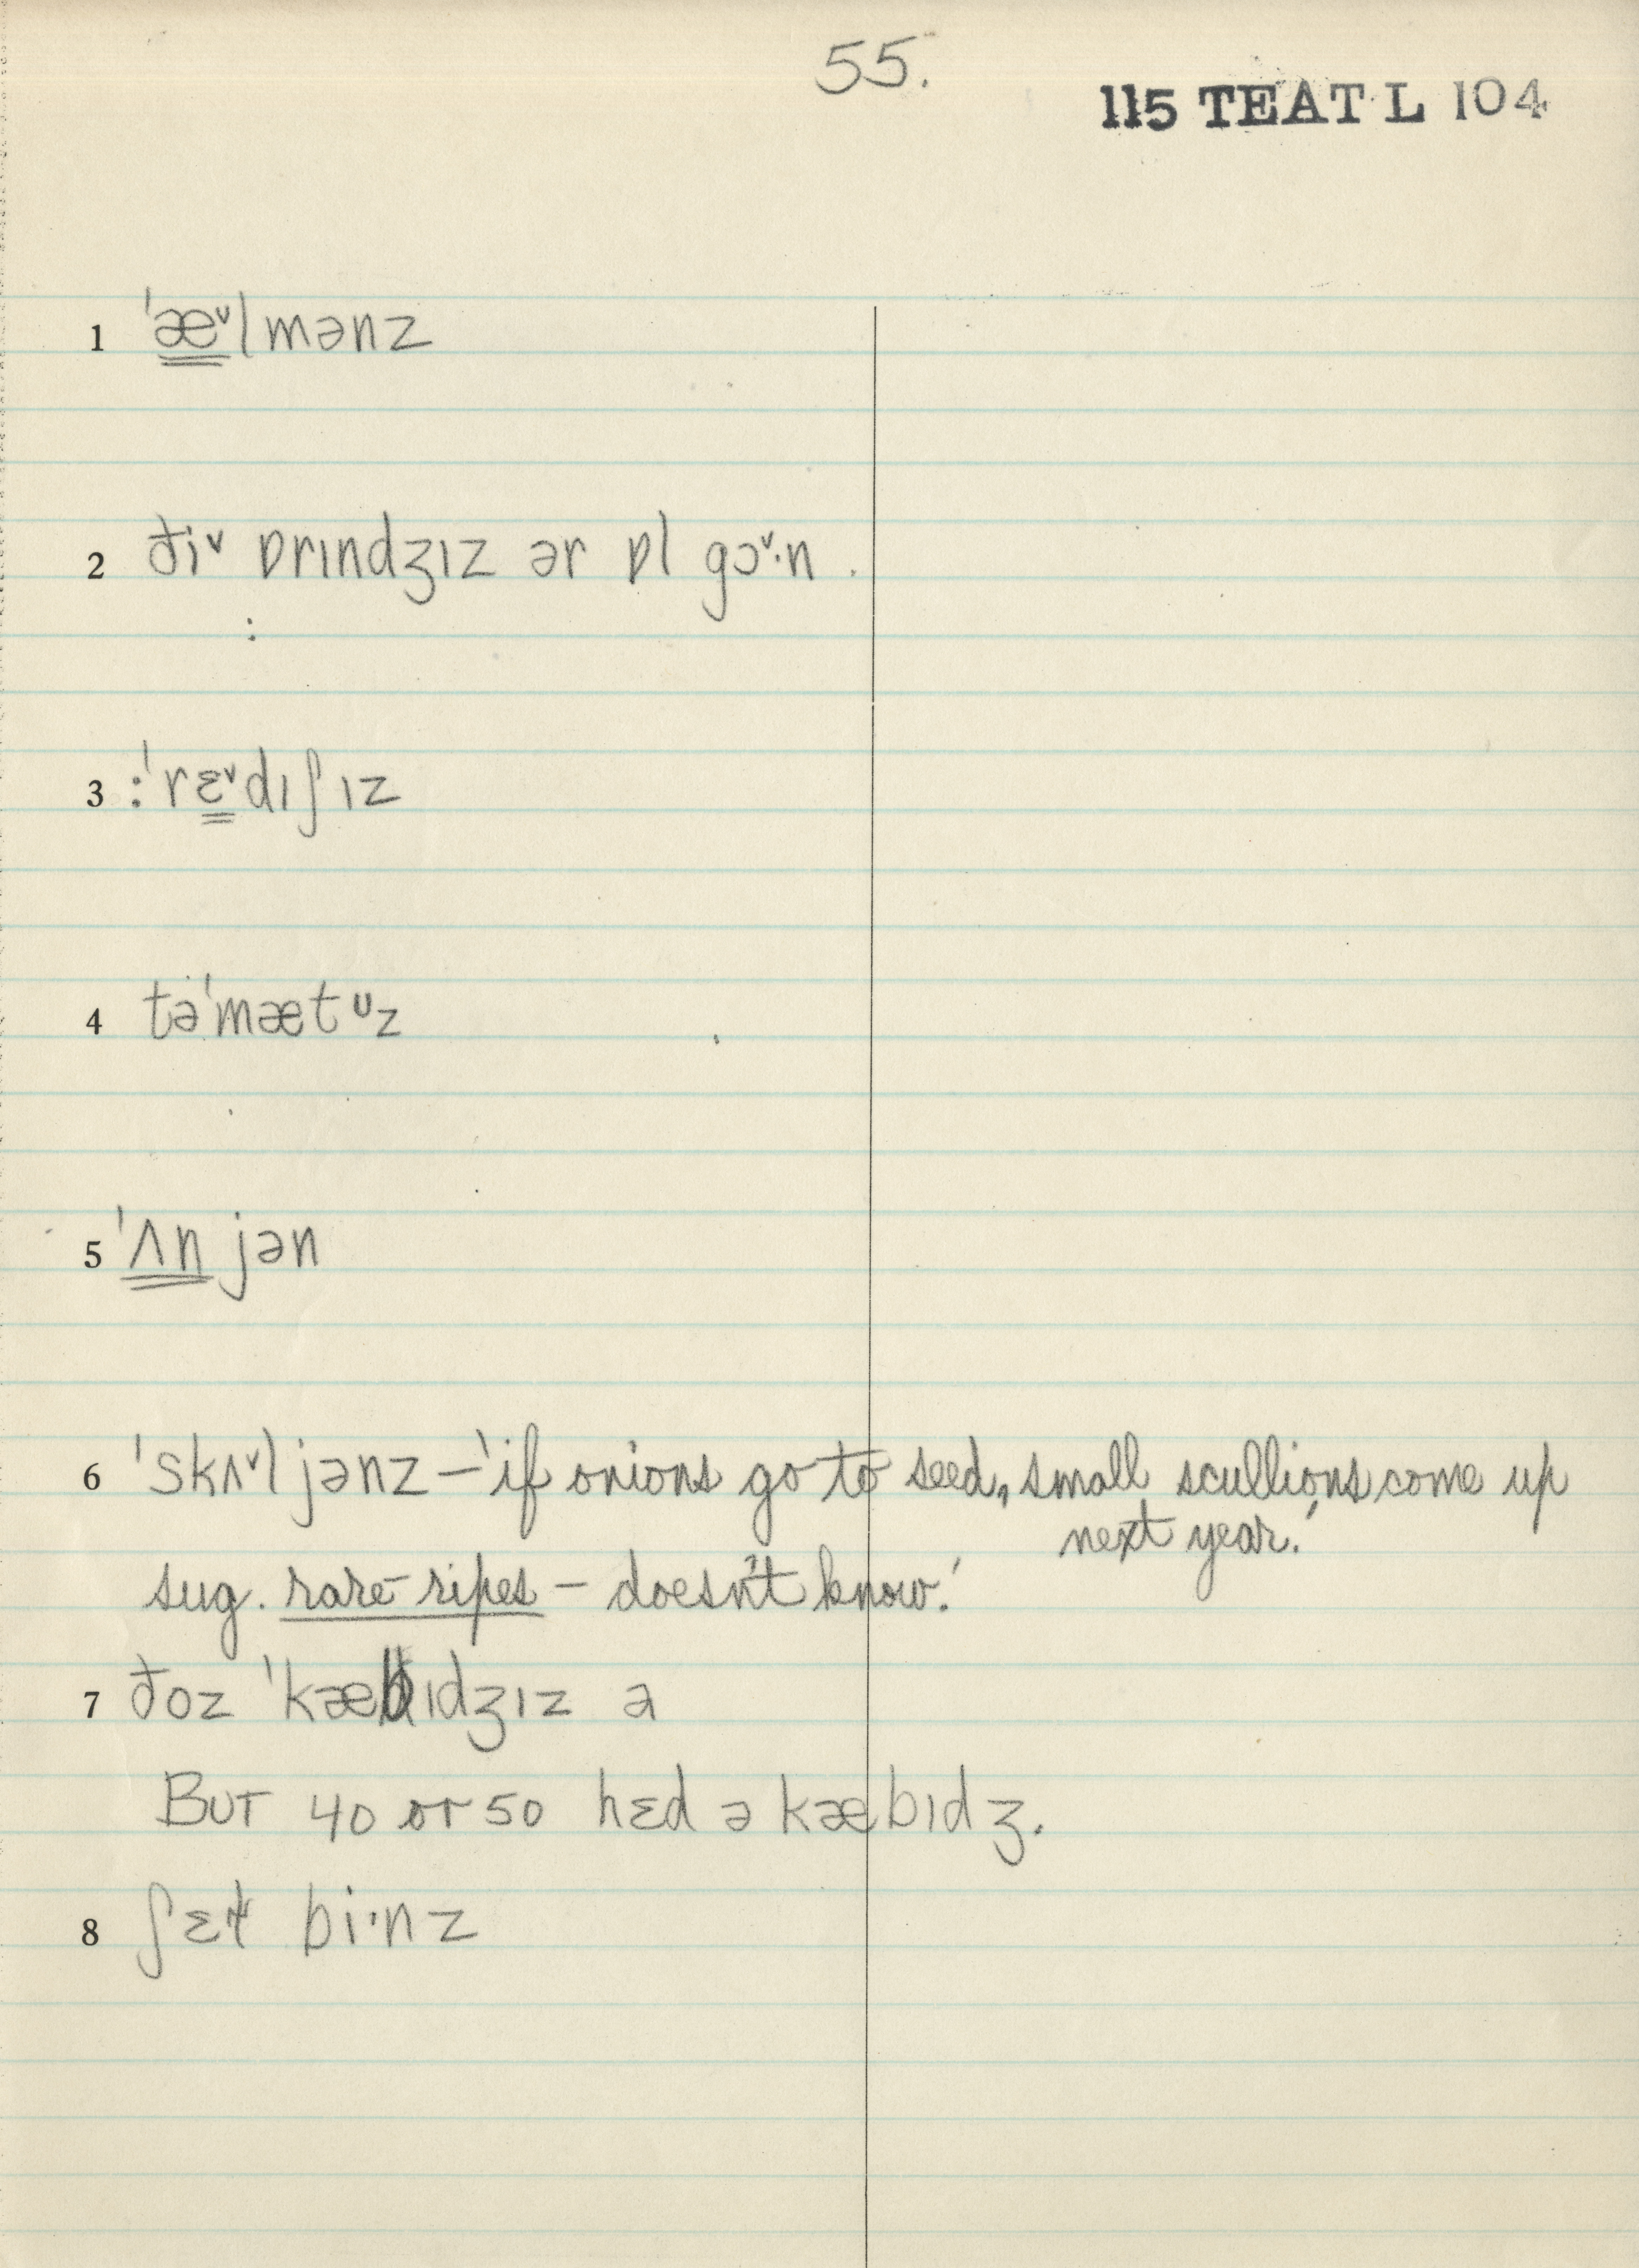 55.
115 TEAT L 104
1 ˈæ̳ˇlmənz
2 ðiˇ ɒrɪndʒɪz ər ɒl gɔˇ·n .
:
3 :ˈrɛ̳ˇdɪʃɪz
4 təˈmætᶷz
5 ˈʌ̳n̳jən
6 ˈskʌˇljənz – 'if onions go to seed, small scullions come up
next year.'
sug. rare-ripes – doesn't know.'
7 ðoz ˈkæbɪdʒɪz ə
BUT 40 or 50 hɛd ə kæbɪdʒ.
8 ʃɛɫ bi·nz